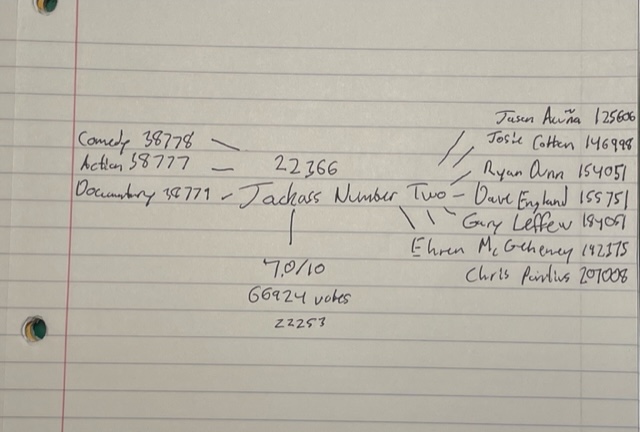 Comedy 38778
Action 38777
Documentary 38779
22366
Jackass Number Two
7.0/10
66924 votes
22253
Jason Acuña 125606
Josie Cotton 146998
Ryan Dunn 154051
Dave England 155751
Gary Leffew 184051
Ehren McGhehey 192375
Chris Pontius 207008